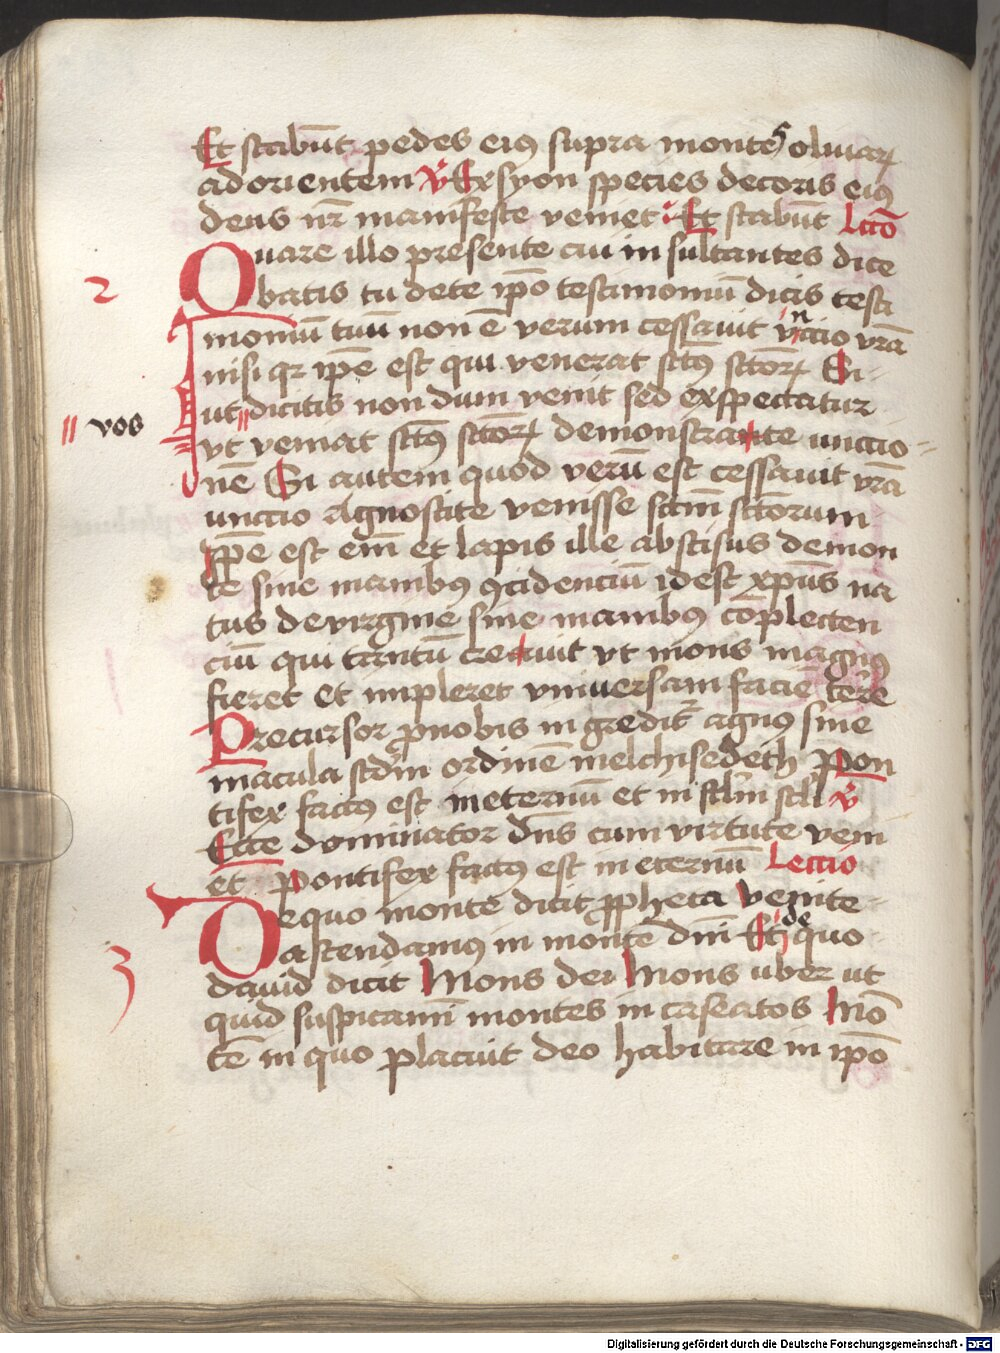 Et stabūt pedes eiꝯ supra monteˢ oliuaꝝ
ad orientem ℣ Ex syon species decoris eiꝯ
deus nr̄ manifeste veniet Et stabūt Lcc̄o
2 Quare illo presente cui in sultantes dice
batis tu dete ip̄o testimoniū dicis testi
moniū tuū non ē verum cessauit vnctio vr̄a
nisi qꝛ ip̄e est qui venerat sctꝯ sctoꝝ Si-
vos ut dicitis non dum venit sed exspectatur
vt veniat sctꝯ sctoꝝ demonstrate unctio-
nē Si autem quod verū est cessauit vr̄a
unctio Agnoscite venisse sctm̄ sctorum
Ip̄e est em̄ et lapis ille abscisus demon
te sine manibꝯ ꝯcidenciū id est xp̄us na
tus de virgine sine manibꝯ cōplecten
ciū qui tantū creuit vt mons magnꝯ
fieret et impleret vniuersam faciē terre
Precursor ꝓ nobis in gredit᷑ agnꝯ sine
macula scdm̄ ordinē melchisedech Pon
tifex factꝯ est ineternū et in sclm̄ scli ℣
Ecce dominator dn̄s cum virtute veni
et Pontifex factꝯ est in eternū Lectio
3 De quo monte dicit ꝓpheta Venite-
ascendamus in montē dn̄i Et de quo
dauid dicit Mons dei Mons uber ut
quid suspicamī montes in caseatos Mō
tē in quo placuit deo habitare in ip̄o
Digitalisierung gefördert durch die Deutsche Forschungsgemeinschaft - DFG